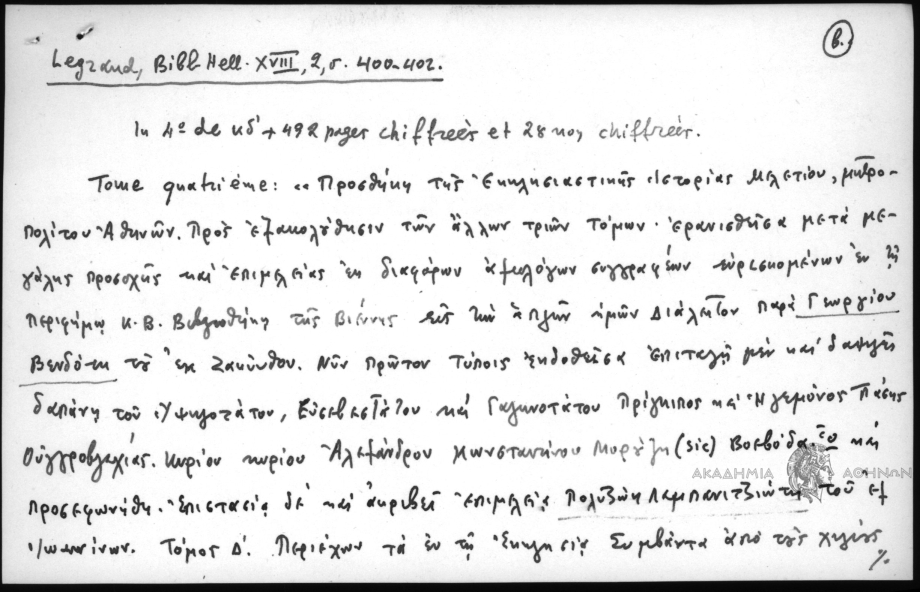 β.
Legrand, Bibl Hell. XVIII, 2, σ. 400-402.
In 4º de κδ' + 492 pages chiffreés et 28 non chiffreés.
Tome quatriéme: «Προσθήκη τῆς Ἐκκλησιαστικῆς Ἱστορίας Μελετίου, μητρο-
πολίτου Ἀθηνῶν. Πρὸς ἐξακολούθησιν τῶν ἄλλων τριῶν τόμων· ἐρανισθεῖσα μετά με-
γάλης προσοχῆς καί ἐπιμελείας ἐκ διαφόρων ἀξιολόγων συγγραφέων εὑρισκομένων ἐν τῇ
περιφήμῳ Κ. Β. Βιβλιοθήκῃ τῆς Βιέννης εἰς τήν ἁπλῆν ἡμῶν Διάλεκτον παρά Γεωργίου
Βενδότη τοῦ ἐκ Ζακύνθου. Νῦν πρῶτον τύποις ἐκδοθεῖσα ἐπιταγῇ μέν καί δαψιλεῖ
δαπάνῃ τοῦ Ὑψηλοτάτου, Εὐσεβεστάτου καί Γαληνοτάτου Πρίγκιπος καί Ἡγεμόνος Πάσης
Οὐγγροβλαχίας. Κυρίου κυρίου Ἀλεξάνδρου Κωνσταντίνου Μορούζη (sic) Βοεβόδα, ᾧ καί
προσεφωνήθη. Ἐπιστασίᾳ δέ καί ἀκριβεῖ ἐπιμελείᾳ Πολυζώη Λαμπανιτζιώτη τοῦ ἐξ
Ἰωαννίνων. Τόμος Δ'. Περιέχων τά ἐν τῇ Ἐκκλησίᾳ Συμβάντα ἀπό τούς χιλίους
%
ΑΚΑΔΗΜΙΑ ΑΘΗΝΩΝ